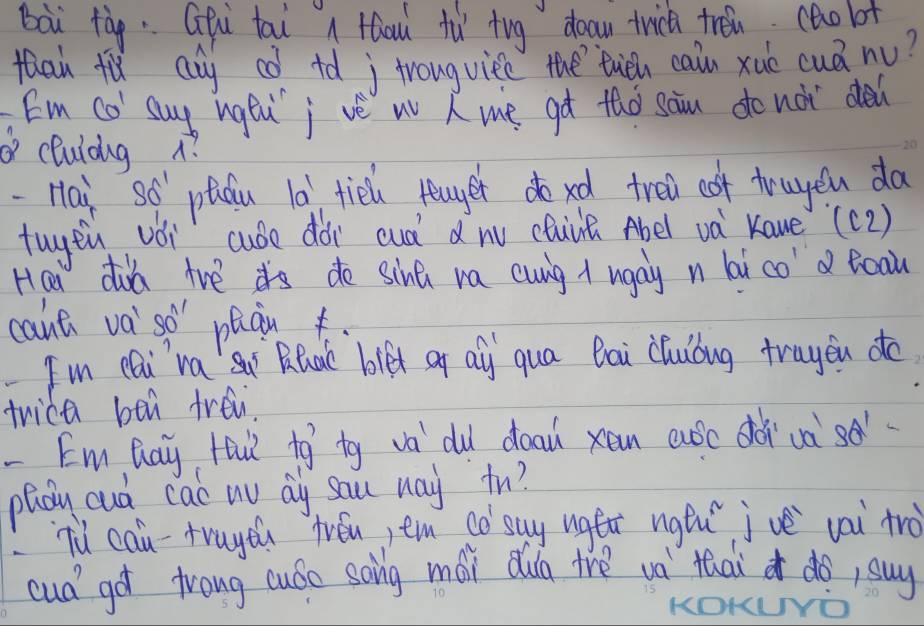 bài tập: Ghi lại 1 thán từ trg đoạn trích trên. Cho bt
thán từ ấy có td j trong việc thể hiện cảm xúc của nv?
- Em có suy nghĩ j về nv h mẹ gđ thợ săn đc nói đến
ở chương 1?
- Hai số phận là tiểu thuyết đc xd trên cốt truyện đa
tuyến với cuộc đời của 2 nv chính Abel và Kane (C2)
Hai đứa trẻ đc sinh ra cùng 1 ngày n lại có 2 hoàn
cảnh và số phận ≠.
- Em chỉ ra sự khác biệt ấy qua hai chương truyện đc
trích bên trên.
- Em hãy thử tg tg và dự đoán xem cuộc đời và số -
phận của các nv ấy sau này tn?
- Từ câu truyện trên, em có suy nghĩ j về vai trò
của gđ trong cuộc sống mỗi đứa trẻ và thái độ, suy
KOKUYO
5 10 15 20
20